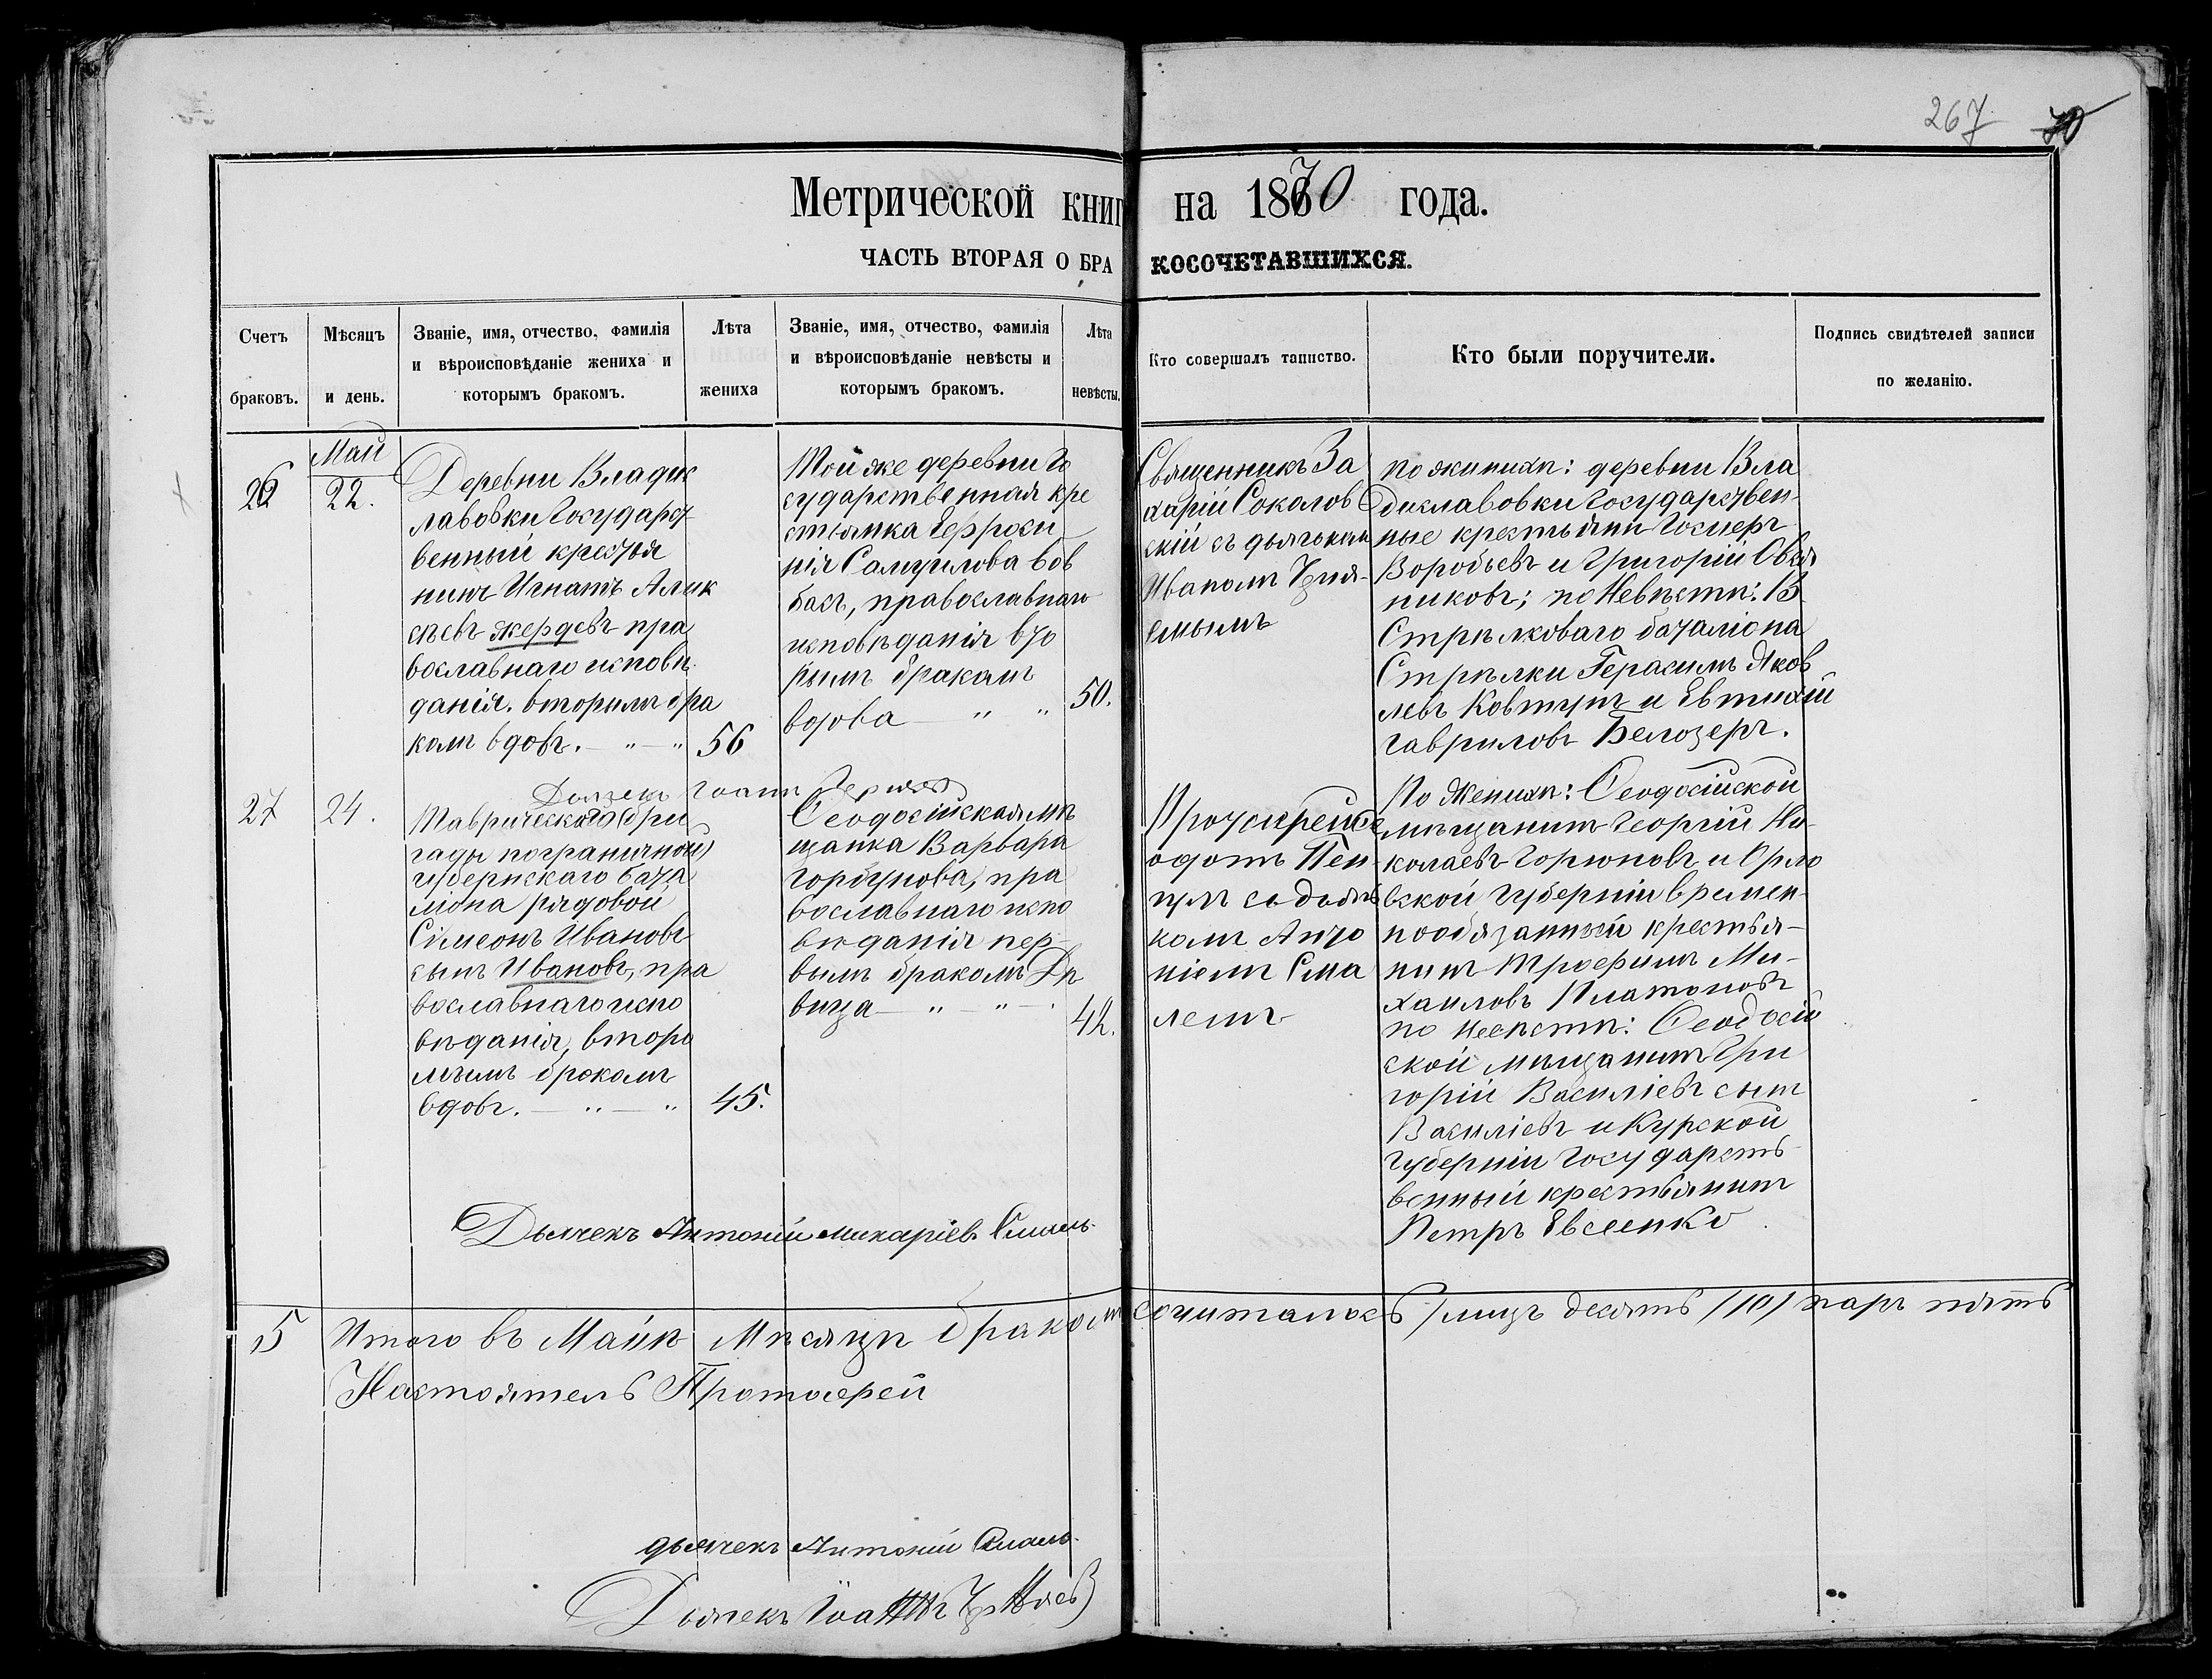 267 70
Метрической книг на 1870 года.
ЧАСТЬ ВТОРАЯ О БРА КОСОЧЕТАВШИХСЯ.
Счетъ
браковъ.
Мѣсяцъ
и день.
Званіе, имя, отчество, фамилія
и вѣроисповѣданіе жениха и
которымъ бракомъ.
Лѣта
жениха
Званіе, имя, отчество, фамилія
и вѣроисповѣданіе невѣсты и
которымъ бракомъ.
Лѣта
невѣсты.
Кто совершалъ таинство.
Кто были поручители.
Подпись свидѣтелей записи
по желанію.
26
Май
22.
Деревни Владис
лавовки Государст
венный крестья
нинъ Игнатъ Алек
сѣевъ Жердевъ пра
вославнаго исповѣ
данія. вторымъ бра
комъ вдовъ. — " — "
56
Той же деревни Го
сударственная кре
стьянка Ефроси
нія Самуилова Бов
басъ, православнаго
исповѣданія вто
рымъ бракомъ
вдова — " "
50.
Священникъ За
харій Соколов
скій съ дьячкомъ
Иваномъ
по женихѣ: деревни Вла
диславовки Государствен-
ные крестьяни
Воробьевъ и Григорій Овся
никовъ; по Невѣстѣ: В
Стрѣлковаго баталіона
Стрѣлки Герасимъ Яков
левъ Ковтунъ и Евтихій
Гавриловъ Белозеръ.
Дьячекъ Іоаннъ
27
24.
Таврической бри
гады пограничной
губернскаго бата
ліона рядовой
Сімеонъ Ивановъ
сынъ Ивановъ, пра
вославнаго испо
вѣданія, второ
мъимъ бракомъ
вдовъ. — " — "
45.
Ѳеодосійская мѣ
щанка Варвара
Горбунова, пра
вославнаго испо
вѣданія пер-
вымъ бракомъ Дѣ
вица — " — " —
42.
Протоиерей Ѳе
одотъ
съ дьяч
комъ Анто
ніемъ Сма
лемъ
По Женихѣ: Ѳеодосійской
мѣщанинъ Георгій Ни-
колаевъ Горюновъ и Орло
вской Губерніи времен-
нообязанный крестья-
нинъ Трофимъ Ми-
хаиловъ Платоновъ
по невѣстѣ: Ѳеодосій
ской мѣщанинъ Гри
горій Василіевъ сынъ
Василіевъ и Курской
Губерніи Государств
венный крестьянинъ
Петръ Евсеенко.
Дьячекъ Антоній Макаріевъ Смаль
5
Итого въ Маіѣ Мѣсяцѣ бракомъ сочиталось лицъ десять /10/ паръ пять
Настоятель Протоиерей
дьячекъ Антоній Смаль
Дьячекъ Іоаннъ